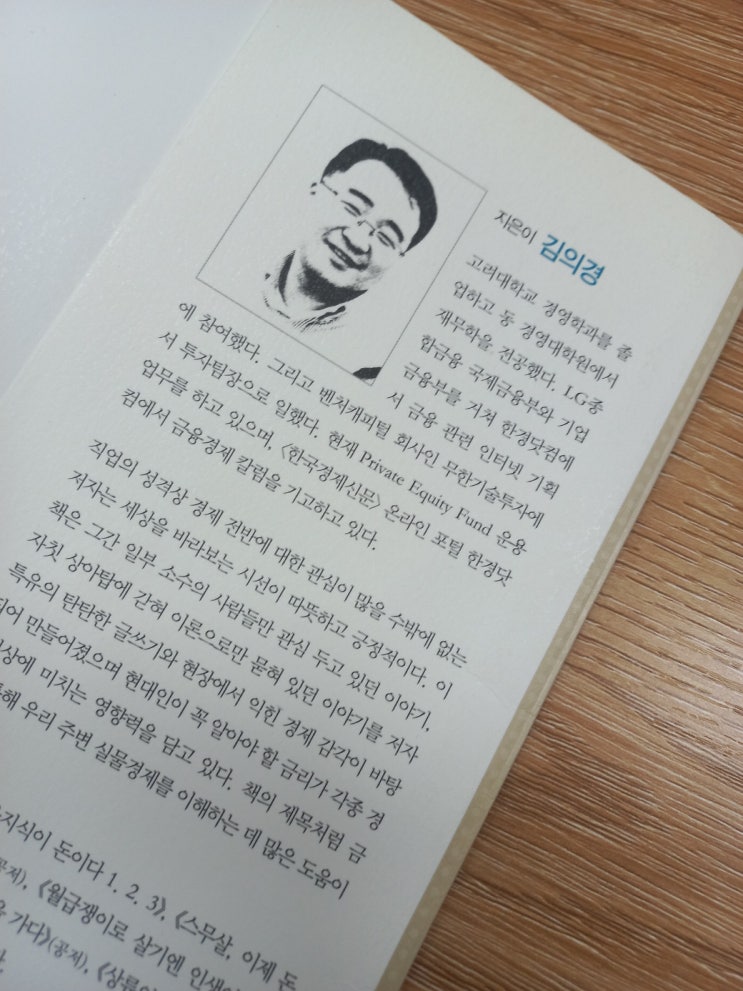 지은이 김의경
고려대학교 경영학과를 졸
업하고 동 경영대학원에서
재무학을 전공했다. LG종
합금융 국제금융부와 기업
금융부를 거쳐 한경닷컴에
서 금융 관련 인터넷 기획
에 참여했다. 그리고 벤처캐피털 회사인 무한기술투자에
서 투자팀장으로 일했다. 현재 Private Equity Fund 운용
업무를 하고 있으며, 〈한국경제신문〉 온라인 포털 한경닷
컴에서 금융경제 칼럼을 기고하고 있다.
직업의 성격상 경제 전반에 대한 관심이 많을 수밖에 없는
저자는 세상을 바라보는 시선이 따뜻하고 긍정적이다. 이
책은 그간 일부 소수의 사람들만 관심 두고 있던 이야기,
자칫 상아탑에 갇혀 이론으로만 묻혀 있던 이야기를 저자
특유의 탄탄한 글쓰기와 현장에서 익힌 경제 감각이 바탕
되어 만들어졌으며 현대인이 꼭 알아야 할 금리가 각종 경
상에 미치는 영향력을 담고 있다. 책의 제목처럼 금
해 우리 주변 실물경제를 이해하는 데 많은 도움이
지식이 돈이다 1, 2, 3》, 《스무살, 이제 돈
공저), 《월급쟁이로 살기엔 인생이
가다》(공저),